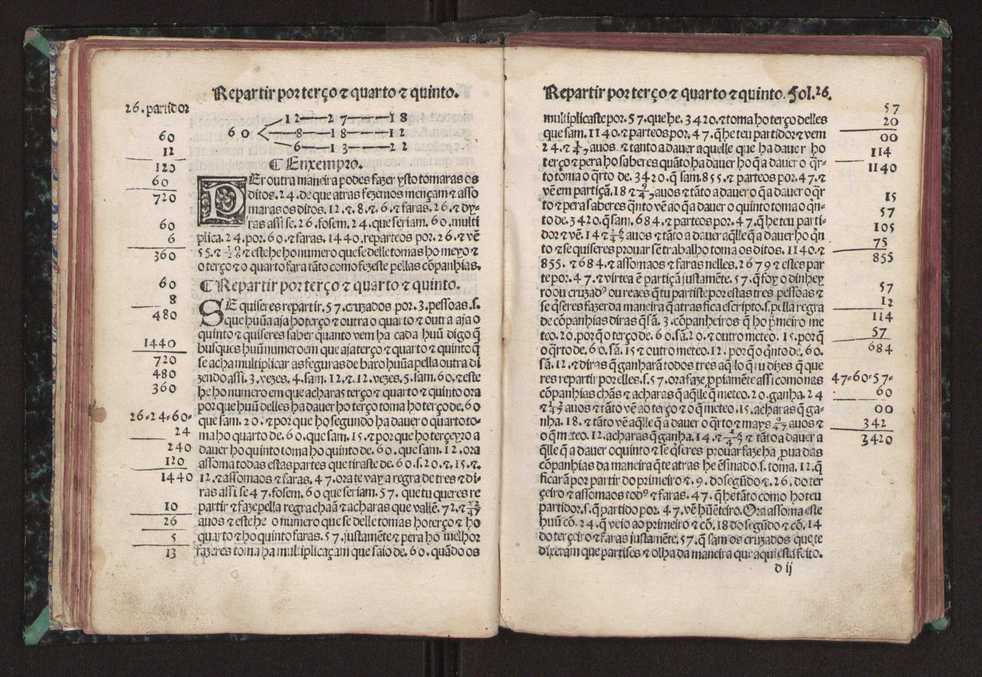 Repartir por terço ⁊ quarto ⁊ quinto.
26. partidor
60
12
120
60
720
60
6
360
60
8
480
1440
720
480
360
26-24-60-
24
240
120
1440
10
26
5
13
60
12—27—18
8—18—12
6—13—22
¶ Enxempro.
Der outra maneira podes fazer ysto tomaras os
ditos. 24. de que atras fezemos mençam ⁊ asso
maras os ditos. 12. ⁊. 8. ⁊. 6. ⁊ faras. 26. ⁊ dy-
ras assi se. 26. fosem. 24. que seriam. 60. multi
plica. 24. por. 60. ⁊ faras. 1440. reparteos por. 26. ⁊ vẽ
55. ⁊ este he ho numero que se delle tomas ho meyo ⁊
o terço ⁊ o quarto fara tãto como fezeste pellas cõpanhias.
¶ Repartir por terço ⁊ quarto ⁊ quinto.
SE quiseres repartir. 57. cruzados por. 3. pessoas. s.
que hũa aja ho terço ⁊ outra o quarto ⁊ outra aja o
quinto ⁊ quiseres saber quanto vem ha cada huũ digo q̃
busques huũ numero em que aja terço ⁊ quarto ⁊ quinto q̃
se acha multiplicar as feguras de baxo hũa pella outra di
zendo assi. 3. vezes. 4. sam. 12. ⁊. 12. vezes. 5. sam. 60. ⁊ este
he ho numero em que acharas terço ⁊ quarto ⁊ quinto ora
por que huũ delles ha dauer ho terço toma ho terço de. 60
que sam. 20. ⁊ por que ho segundo ha dauer o quarto to-
ma ho quarto de. 60. que sam. 15. ⁊ por que ho terçeyro a
dauer ho quinto toma ho quinto de. 60. que sam. 12. ora
assoma todas estas partes que tiraste de. 60. s. 20. ⁊. 15. ⁊.
12. ⁊ assomaos ⁊ faras. 47. ora te vay a regra de tres ⁊ di-
ras assi se 47. fosem. 60 que seriam. 57. que tu queres re
partir ⁊ faze pella regra chaã ⁊ acharas que valẽ. 72. ⁊
auos ⁊ este he o numero que se delle tomas ho terço ⁊ ho
quarto ⁊ ho quinto faras. 57. justamẽte ⁊ pera ho melhor
fazeres toma ha multiplicaçam que saio de. 60. quãdo os
Repartir por terço ⁊ quarto ⁊ quinto. Fol. 26.
multiplicaste por. 57. que he. 3420. ⁊ toma ho terço delles
que sam. 1140. ⁊ parteos por. 47. q̃ he teu partidor ⁊ vem
24. ⁊ auos. ⁊ tanto a dauer aquelle que ha dauer ho
terço ⁊ pera ho saberes quãto ha dauer ho q̃ a dauer o qr̃-
to toma o qr̃to de. 3420. q̃ sam. 855. ⁊ parteos por. 47. ⁊
vẽ em partiçã. 18 ⁊ auos ⁊ tãto a dauer o q̃ a dauer o qr̃
to ⁊ pera saberes quĩto vẽ ao q̃ a dauer o quinto toma o qñ-
to de. 3420. q̃ sam. 684. ⁊ parteos por 47. q̃ he teu parti-
dor ⁊ vẽ. 14 ⁊ auos ⁊ tãto a dauer aq̃lle q̃ a dauer ho qñ
to ⁊ se quiseres prouar se trabalho toma os ditos. 1140. ⁊
855. ⁊ 684. ⁊ assomaos ⁊ faras nelles. 2679 ⁊ estes par
te por. 47. ⁊ virtea ẽ partiçã justamẽte. 57. q̃ foy o dinhey
ro ou cruzados ou reaes q̃ tu partiste por estas tres pessoas ⁊
se q̃seres fazer da maneira q̃ atras fica escripto. s. pella regra
de cõpanhias diras q̃ sã. 3. companheiros q̃ ho p̃meiro me
teo. 20. por q̃ o terço de. 60. sã. 20. ⁊ outro meteo. 15. por q̃
o qr̃to de. 60. sã. 15 ⁊ outro meteo. 12. por q̃ o qñto de. 60.
sã. 12. ⁊ diras q̃ ganharã todos tres aq̃lo q̃ tu dizes q̃ que
res repartir por elles. s. 57. ora faze p̃piamẽte assi como nas
cõpanhias chãs ⁊ acharas q̃ aq̃lle q̃ meteo. 20. ganha. 24
⁊ auos ⁊ tãto vẽ ao terço ⁊ o q̃ meteo. 15. acharas q̃ ga-
nha. 18. ⁊ tãto vẽ aq̃lle q̃ a dauer o qr̃to ⁊ mays auos ⁊
o q̃ meteo. 12. acharas q̃ ganha. 14. ⁊ ⁊ tãto a dauer a
q̃lle q̃ a dauer o quinto ⁊ se q̃seres prouar faze ha prua das
cõpanhias da maneira q̃ te atras he ẽsinado. s. toma. 12. q̃
ficarã por partir do primeiro ⁊. 9. do segũdo ⁊. 26. do ter
çeiro ⁊ assomaos todos ⁊ faras. 47. q̃ he tãto como ho teu
partidor. s. q̃ partido por. 47. vẽ huũ ẽteiro. Ora assoma este
huũ cõ. 24. q̃ veio ao primeiro ⁊ cõ. 18 do segũdo ⁊ cõ. 14
do terçeiro ⁊ faras justamẽte. 57. q̃ sam os cruzados que te
dixeram que partises ⁊ olha da maneira que aqui esta feito.
d ij
57
20
00
114
1140
15
57
105
75
855
57
12
114
57
684
47-60-57-
60
00
342
3420